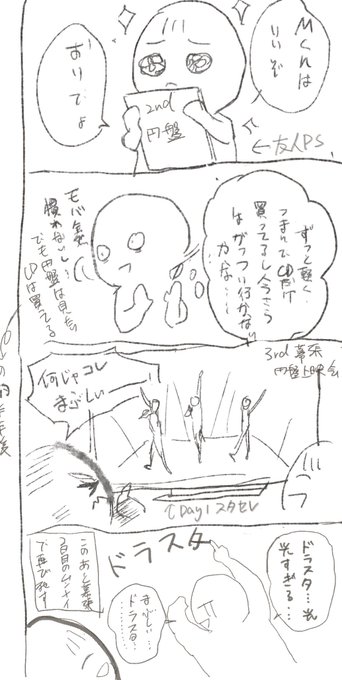 Mくんは
いいぞ
おりでよ
2nd
円盤
←友人PS
ずっと軽く
つまんでCDだけ
買ってるし今さら
はがっつい行かない
かな…
モバ気
慣れないし…
でも円盤は見る
CDは買ってる
3rd幕張
円盤上映会
何じゃコレ
まぶしぃー
Day1スタセレ
ドラスタ
ドラスタ…光
光すぎる…
まぶしい…
ドラスタ…
このあと幕張
2日目の
で再び死す